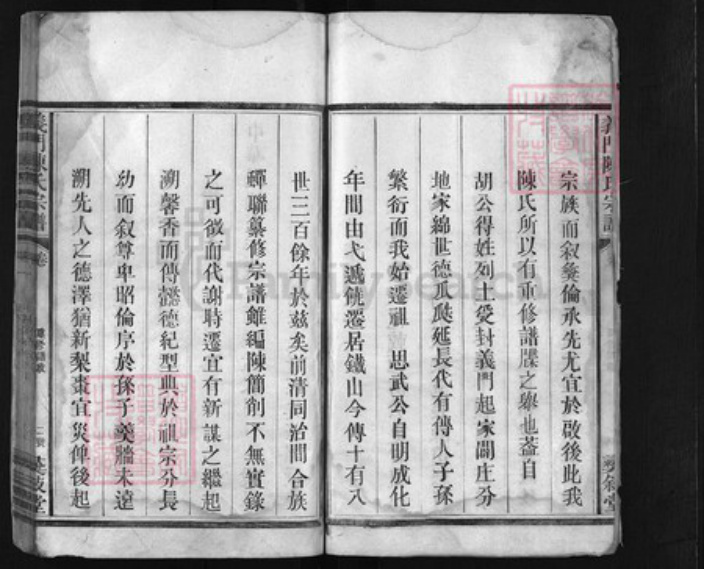 義門陳氏宗譜
宗族而叙彝倫承先尤宜於啟後此我
陳氏所以有重修譜牒之舉也蓋自
胡公得姓列土受封義門起家闢庄分
地家綿世德瓜瓞延長代有傳人子孫
繁衍而我始遷祖 思武公自明成化
年間由弋遞饒遷居鐵山今傳十有八
世三百餘年於茲矣前清同治間合族
蟬聯纂修宗譜雖編陳簡削不無實錄
之可徵而代謝時遷宜有新謀之繼起
溯馨香而傳懿德紀型典於祖宗分長
幼而叙尊卑昭倫序於孫子羹牆未遠
溯先人之德澤猶新梨棗宜災俾後起
義門陳氏宗譜 卷
FamilySearch